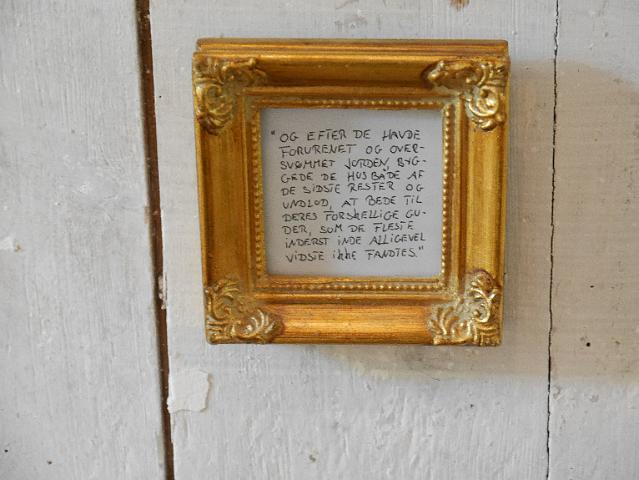 "OG EFTER DE HAVDE
FORURENET OG OVER-
SVØMMET JORDEN, BYG-
GEDE DE HUSBÅDE AF
DE SIDSTE RESTER OG
UNDLOD, AT BEDE TIL
DERES FORSKELLIGE GU-
DER, SOM DE FLESTE
INDERST INDE ALLIGEVEL
VIDSTE IKKE FANDTES."